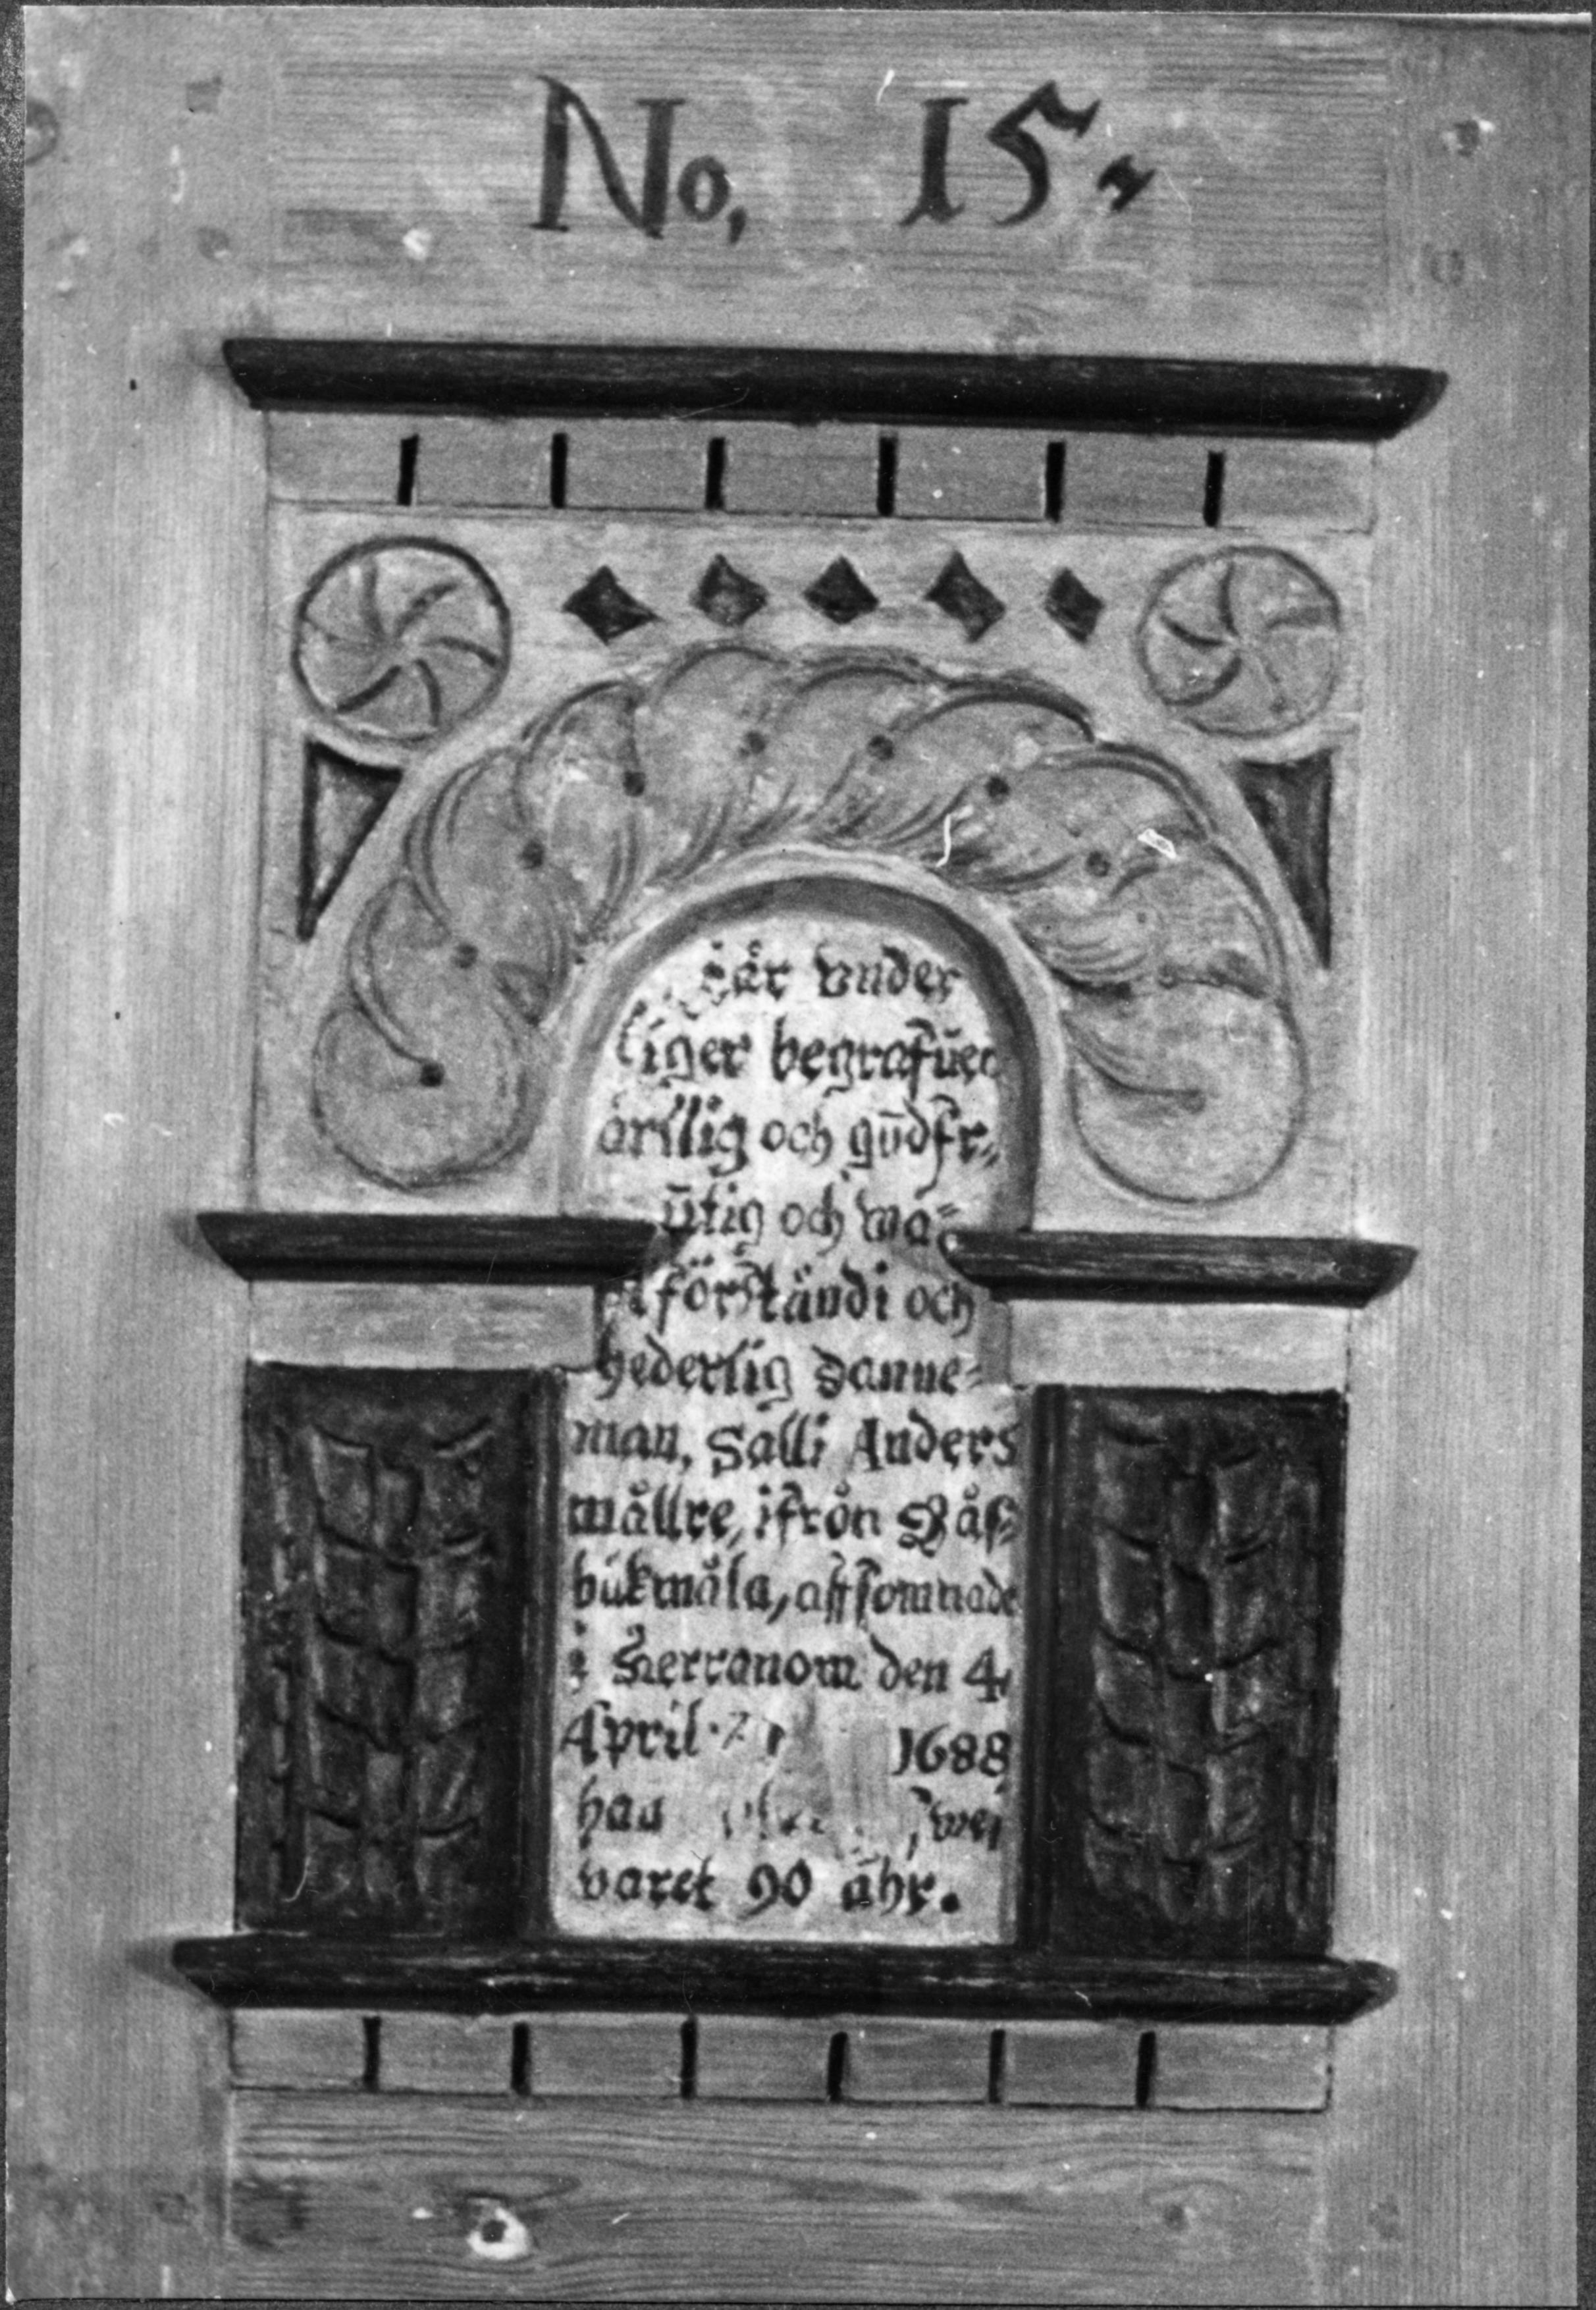 No, 15.
här vnder
liger begrafuen
ärllig och gūdfr=
ūtig och wä=
förständi och
hederlig danne=
man, Salli Anders
mållre, ifrån Råf=
būkmåla, affsomnade
i Herranom den 4
April 1688
han
varet 90 åhr.